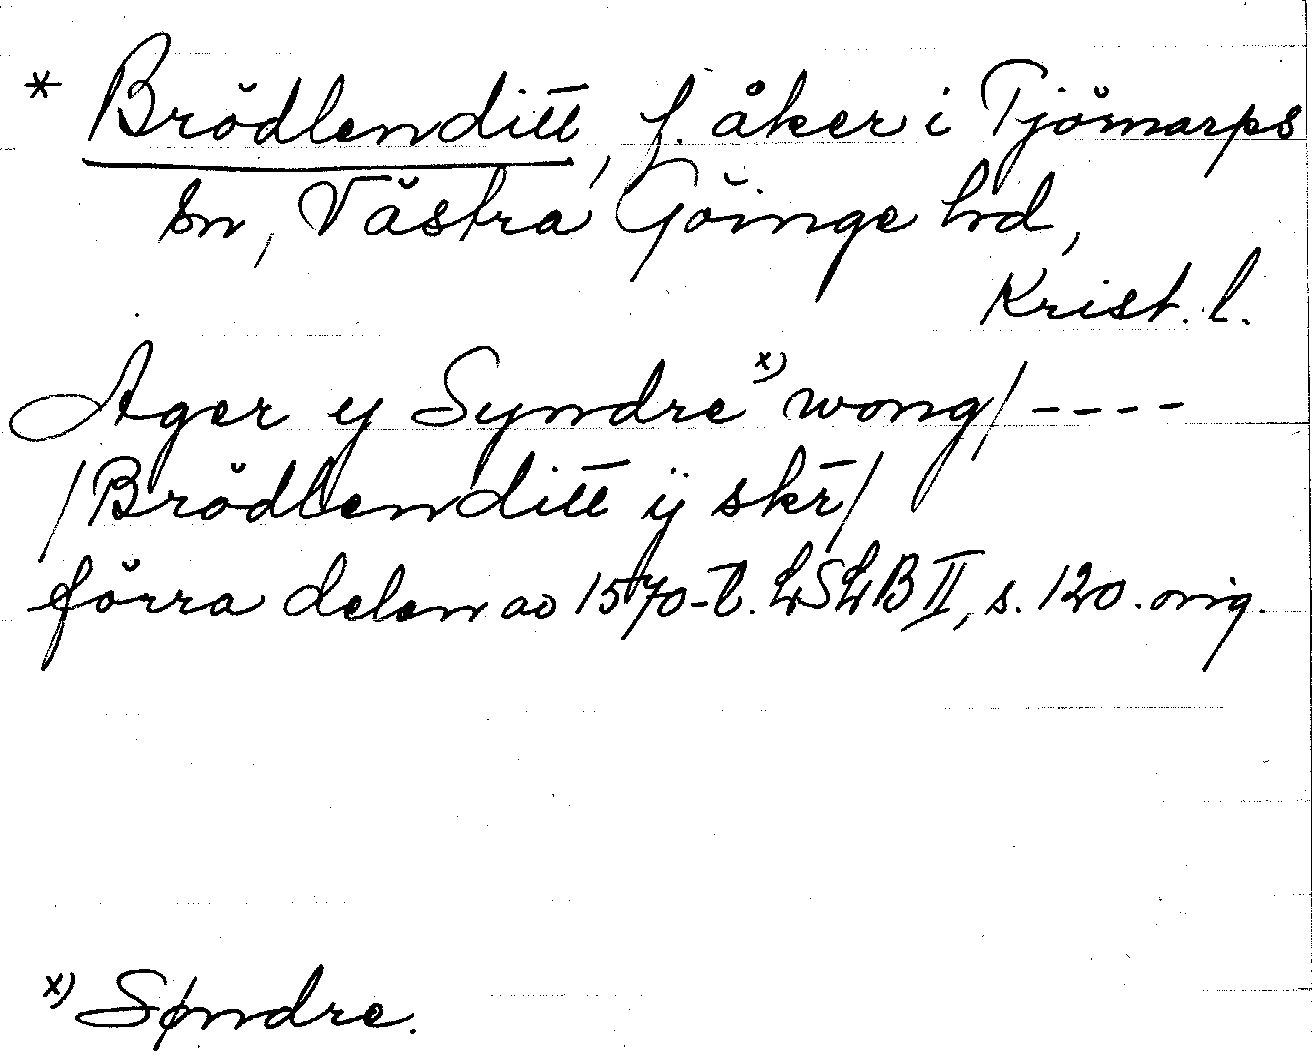 * Brödlenditt, f. åker i Tjömarps
sn, Västra Göinge hd,
Krist. l.
Ager y Syndre x) wong/ - - - -
/Brödlenditt ÿ skr̄/
förra delen av 1570-t. LSLB II, s. 120. orig.
x) Søndre.